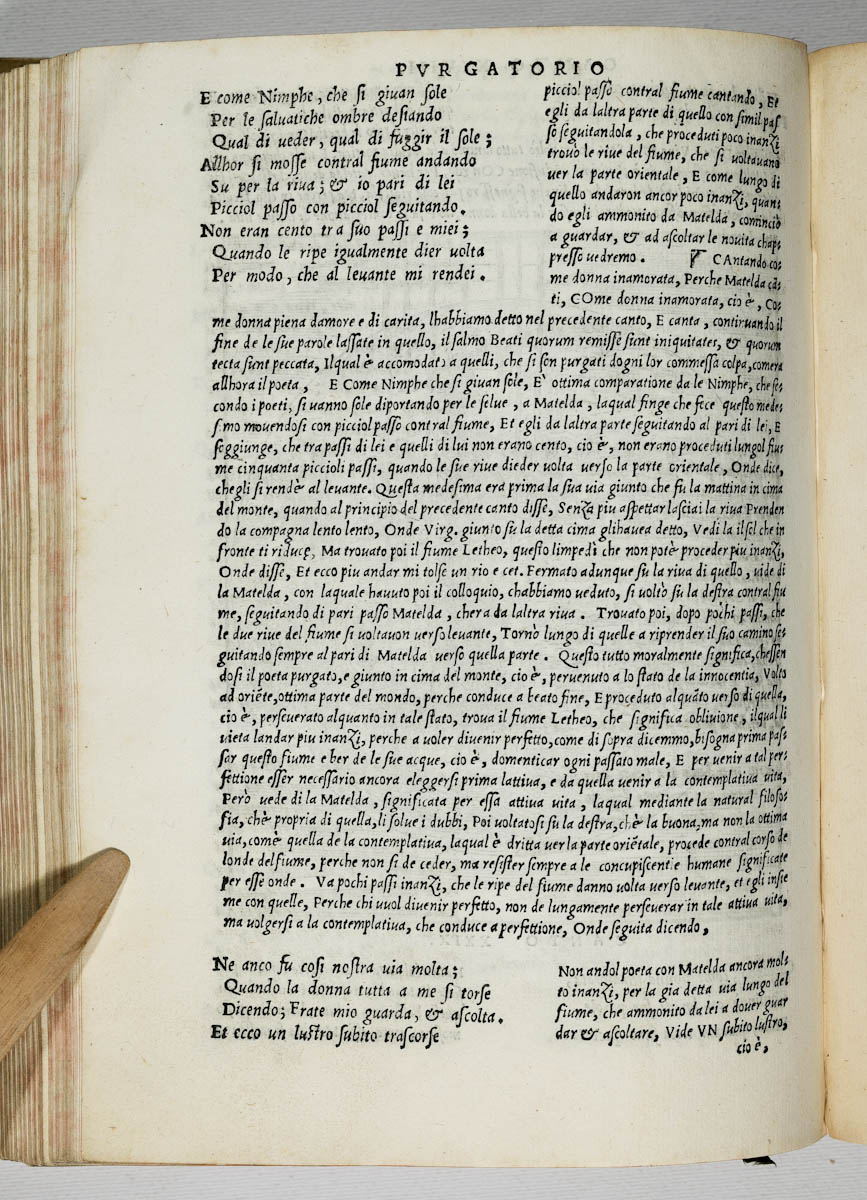 PVRGATORIO
E come Nimphe, che si giuan sole
Per le saluatiche ombre desiando
Qual di ueder, qual di fuggir il sole;
Allhor si mosse contral fiume andando
Su per la riua; & io pari di lei
Picciol passo con picciol seguitando.
Non eran cento tra suo passi e miei;
Quando le ripe igualmente dier uolta
Per modo, che al leuante mi rendei.
picciol passo contral fiume cantando, Et
egli da laltra parte di quello con simil pas
so seguitandola, che proceduti poco inanzi
trouò le riue del fiume, che si uoltauano
uer la parte orientale, E come lungo di
quello andaron ancor poco inanzi, quan
do egli ammonito da Matelda, cominciò
a guardar, & ad ascoltar le nouita chap
presso uedremo. CAntando co=
me donna inamorata, Perche Matelda cā=
ti, COme donna inamorata, cio è, Co=
me donna piena damore e di carita, lhabbiamo detto nel precedente canto, E canta, continuando il
fine de le sue parole lassate in quello, il salmo Beati quorum remisse sunt iniquitates, & quorum
tecta sunt peccata, Ilqual è accomodato a quelli, che si son purgati dogni lor commessa colpa, comera
allhora il poeta, E Come Nimphe che si giuan sole, E' ottima comparatione da le Nimphe, che se=
condo i poeti, si uanno sole diportando per le selue, a Matelda, laqual finge che fece questo mede=
simo mouendosi con picciol passo contral fiume, Et egli da laltra parte seguitando al pari di lei, E
soggiunge, che tra passi di lei e quelli di lui non erano cento, cio è, non erano proceduti lungol fiu=
me cinquanta piccioli passi, quando le sue riue dieder uolta uerso la parte orientale, Onde dice,
chegli si rendè al leuante. Questa medesima era prima la sua uia giunto che fu la mattina in cima
del monte, quando al principio del precedente canto disse, Senza piu aspettar lasciai la riua Prenden
do la compagna lento lento, Onde Virg. giunto su la detta cima glihauea detto, Vedi la ilsol che in
fronte ti riduce, Ma trouato poi il fiume Letheo, questo limpedì che non potè proceder piu inanzi,
Onde disse, Et ecco piu andar mi tolse un rio e cet. Fermato adunque su la riua di quello, uide di
la Matelda, con laquale hauuto poi il colloquio, chabbiamo ueduto, si uoltò su la destra contral fiu
me, seguitando di pari passo Matelda, chera da laltra riua. Trouato poi, dopo pochi passi, che
le due riue del fiume si uoltauon uerso leuante, Tornò lungo di quelle a riprender il suo camino se=
guitando sempre al pari di Matelda uerso quella parte. Questo tutto moralmente significa, chessen
dosi il poeta purgato, e giunto in cima del monte, cio è, peruenuto a lo stato de la innocentia, Volto
ad oriēte, ottima parte del mondo, perche conduce a beato fine, E proceduto alquāto uerso di quella,
cio è, perseuerato alquanto in tale stato, troua il fiume Letheo, che significa obliuione, ilqual li
uieta landar piu inanzi, perche a uoler diuenir perfetto, come di sopra dicemmo, bisogna prima pas=
sar questo fiume e ber de le sue acque, cio è, domenticar ogni passato male, E per uenir a tal per=
fettione esser necessario ancora eleggersi prima lattiua, e da quella uenir a la contemplatiua uita,
Però uede di la Matelda, significata per essa attiua uita, laqual mediante la natural filoso=
fia, chè propria di quella, li solue i dubbi, Poi uoltatosi su la destra, chè la buona, ma non la ottima
uia, comè quella de la contemplatiua, laqual è dritta uer la parte oriētale, procede contral corso de
londe del fiume, perche non si de ceder, ma resister sempre a le concupiscentie humane significate
per esse onde. Va pochi passi inanzi, che le ripe del fiume danno uolta uerso leuante, et egli insie
me con quelle, Perche chi uuol diuenir perfetto, non de lungamente perseuerar in tale attiua uita,
ma uolgersi a la contemplatiua, che conduce a perfettione, Onde seguita dicendo,
Ne anco fu cosi nostra uia molta;
Quando la donna tutta a me si torse
Dicendo; Frate mio guarda, & ascolta.
Et ecco un lustro subito trascorse
Non andol poeta con Matelda ancora mol=
to inanzi, per la gia detta uia lungo del
fiume, che ammonito da lei a douer guar
dar & ascoltare, Vide VN subito lustro,
cio è,